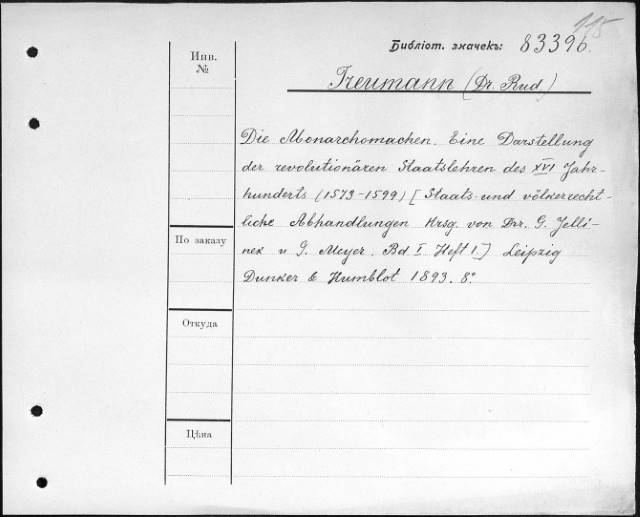 115
Библіот. значекъ: 83396.
Инв.
№
Treumann (Dr. Rud)
Die Monarchomachen. Eine Darstellung
der revolutionären Staatslehren des XVI Jahr-
hunderts (1573-1599) [Staats- und völkerrecht-
liche Abhandlungen Hrsg. von Drr. G. Jelli-
nek u G. Meyer. Bd I. Heft 1.] Leipzig
Dunker & Humblot 1893. 8º
По заказу
Откуда
Цѣна